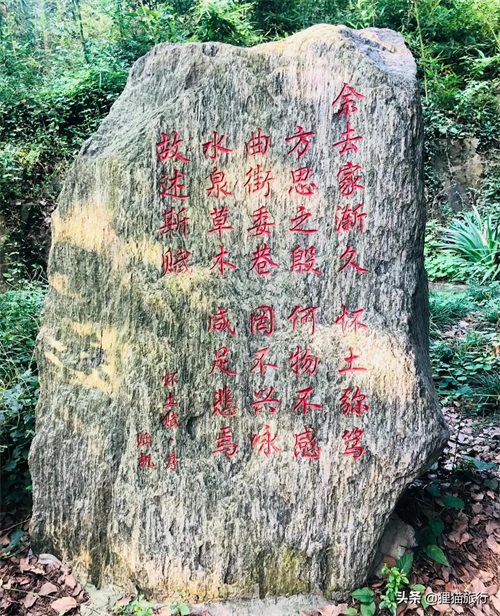 余去家渐久 怀土弥笃
方思之殷 何物不感
曲街委巷 罔不兴咏
水泉草木 咸足悲焉
故述斯赋
怀土赋·序
陆机
头条 @狸猫旅行